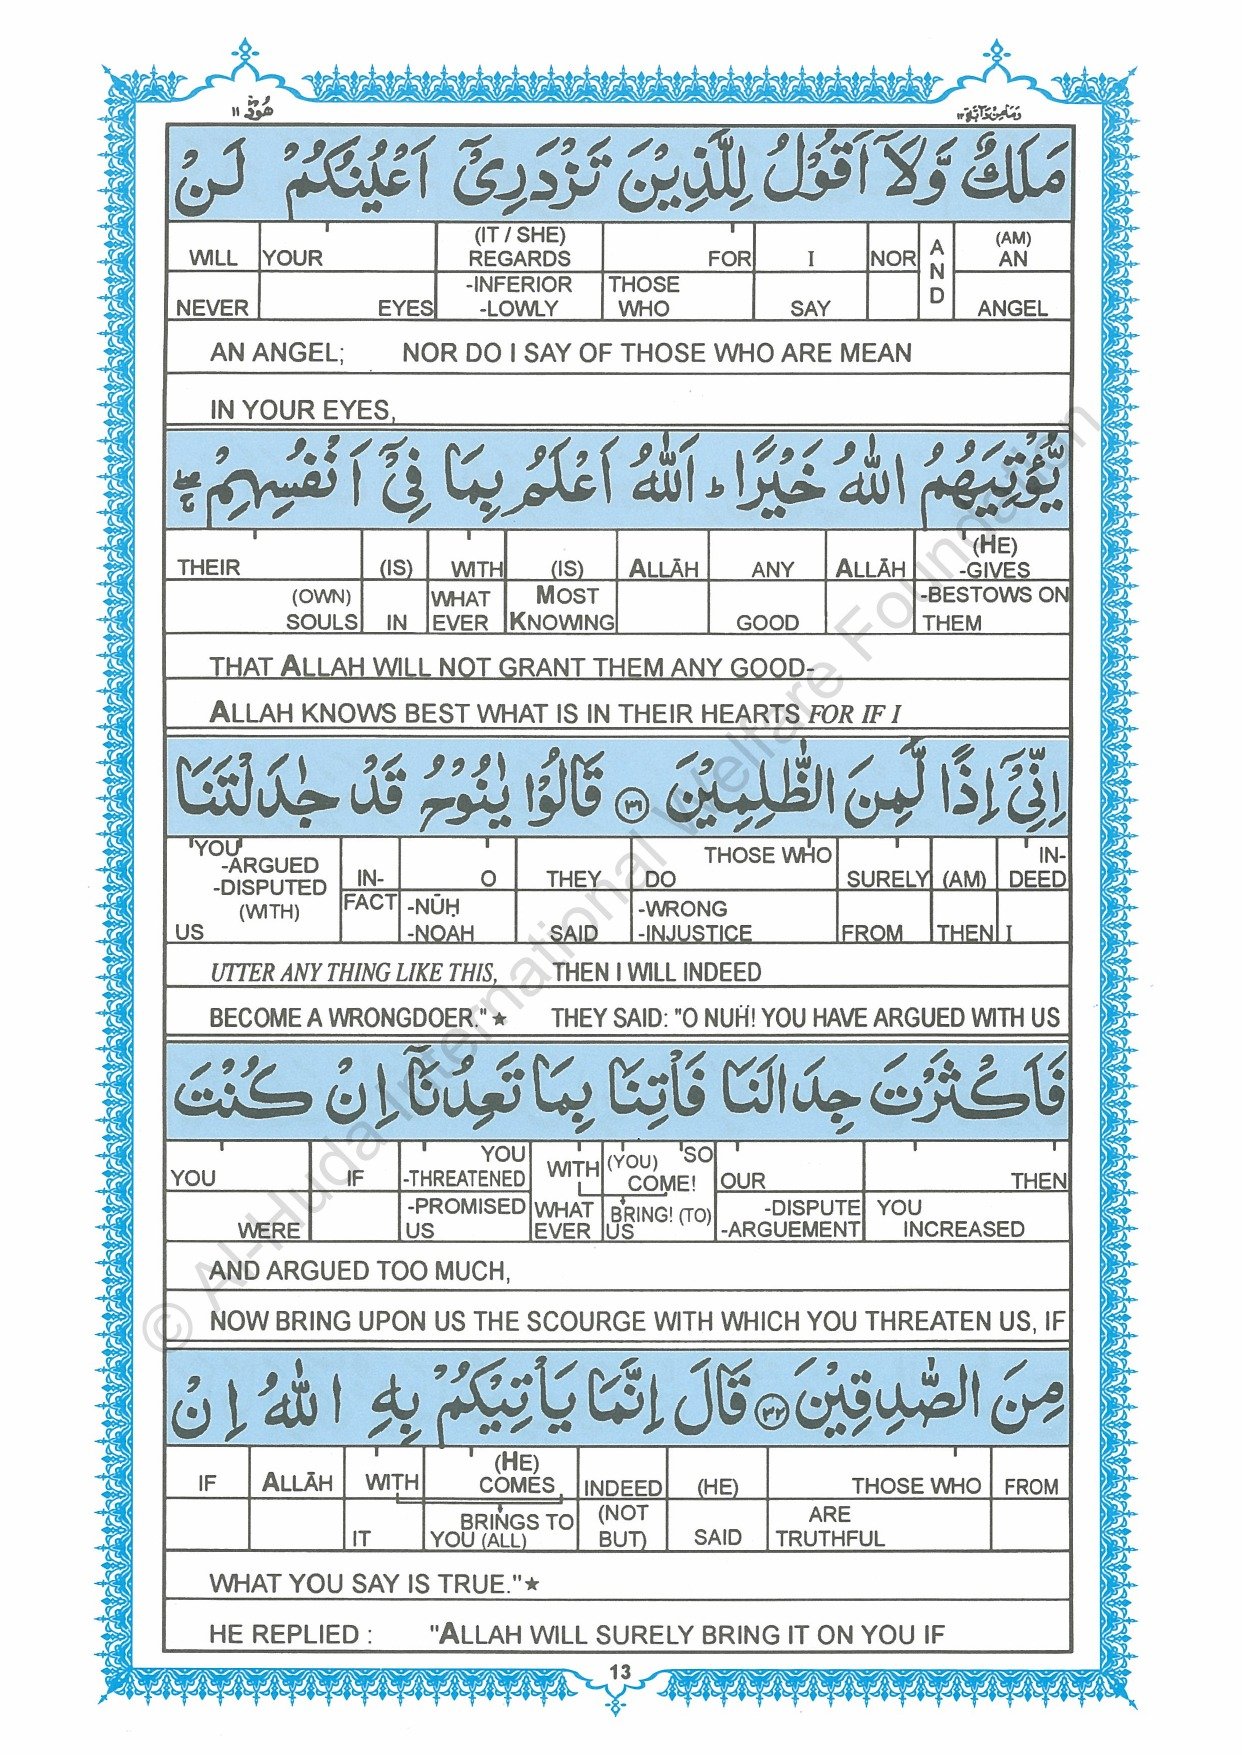 هُوْد ١١
وَمَامِنْ دَآبَّة ١٢
مَلَكٌ وَّلَاۤ اَقُوْلُ لِلَّذِيْنَ تَزْدَرِىْۤ اَعْيُنُكُمْ لَنْ
WILL YOUR (IT / SHE) REGARDS FOR I NOR AND (AM) AN
NEVER EYES -INFERIOR -LOWLY THOSE WHO SAY ANGEL
AN ANGEL; NOR DO I SAY OF THOSE WHO ARE MEAN
IN YOUR EYES,
يُّؤْتِيَهُمُ اللّٰهُ خَيْرًا ؕ اَللّٰهُ اَعْلَمُ بِمَا فِىْۤ اَنْفُسِهِمْ ۖۚ
THEIR (IS) WITH (IS) ALLĀH ANY ALLĀH (HE) -GIVES
(OWN) SOULS IN WHAT EVER MOST KNOWING GOOD -BESTOWS ON THEM
THAT ALLAH WILL NOT GRANT THEM ANY GOOD-
ALLAH KNOWS BEST WHAT IS IN THEIR HEARTS FOR IF I
اِنِّىْۤ اِذًا لَّمِنَ الظّٰلِمِيْنَ ﴿٣١﴾ قَالُوْا يٰنُوْحُ قَدْ جٰدَلْتَنَا
YOU -ARGUED -DISPUTED (WITH) IN- O THEY THOSE WHO DO SURELY (AM) IN- DEED
US FACT -NŪḤ -NOAH SAID -WRONG -INJUSTICE FROM THEN I
UTTER ANY THING LIKE THIS, THEN I WILL INDEED
BECOME A WRONGDOER."★ THEY SAID: "O NUḦ! YOU HAVE ARGUED WITH US
فَاَكْثَرْتَ جِدَالَنَا فَاْتِنَا بِمَا تَعِدُنَاۤ اِنْ كُنْتَ
YOU IF YOU -THREATENED WITH (YOU) SO COME! OUR THEN
WERE -PROMISED US WHAT EVER BRING! (TO) US -DISPUTE -ARGUEMENT YOU INCREASED
AND ARGUED TOO MUCH,
NOW BRING UPON US THE SCOURGE WITH WHICH YOU THREATEN US, IF
مِنَ الصّٰدِقِيْنَ ﴿٣٢﴾ قَالَ اِنَّمَا يَاْتِيْكُمْ بِهِ اللّٰهُ اِنْ
IF ALLĀH WITH (HE) COMES INDEED (HE) THOSE WHO FROM
IT BRINGS TO YOU (ALL) (NOT BUT) SAID ARE TRUTHFUL
WHAT YOU SAY IS TRUE."★
HE REPLIED : "ALLAH WILL SURELY BRING IT ON YOU IF
13
© Al-Huda International Welfare Foundation